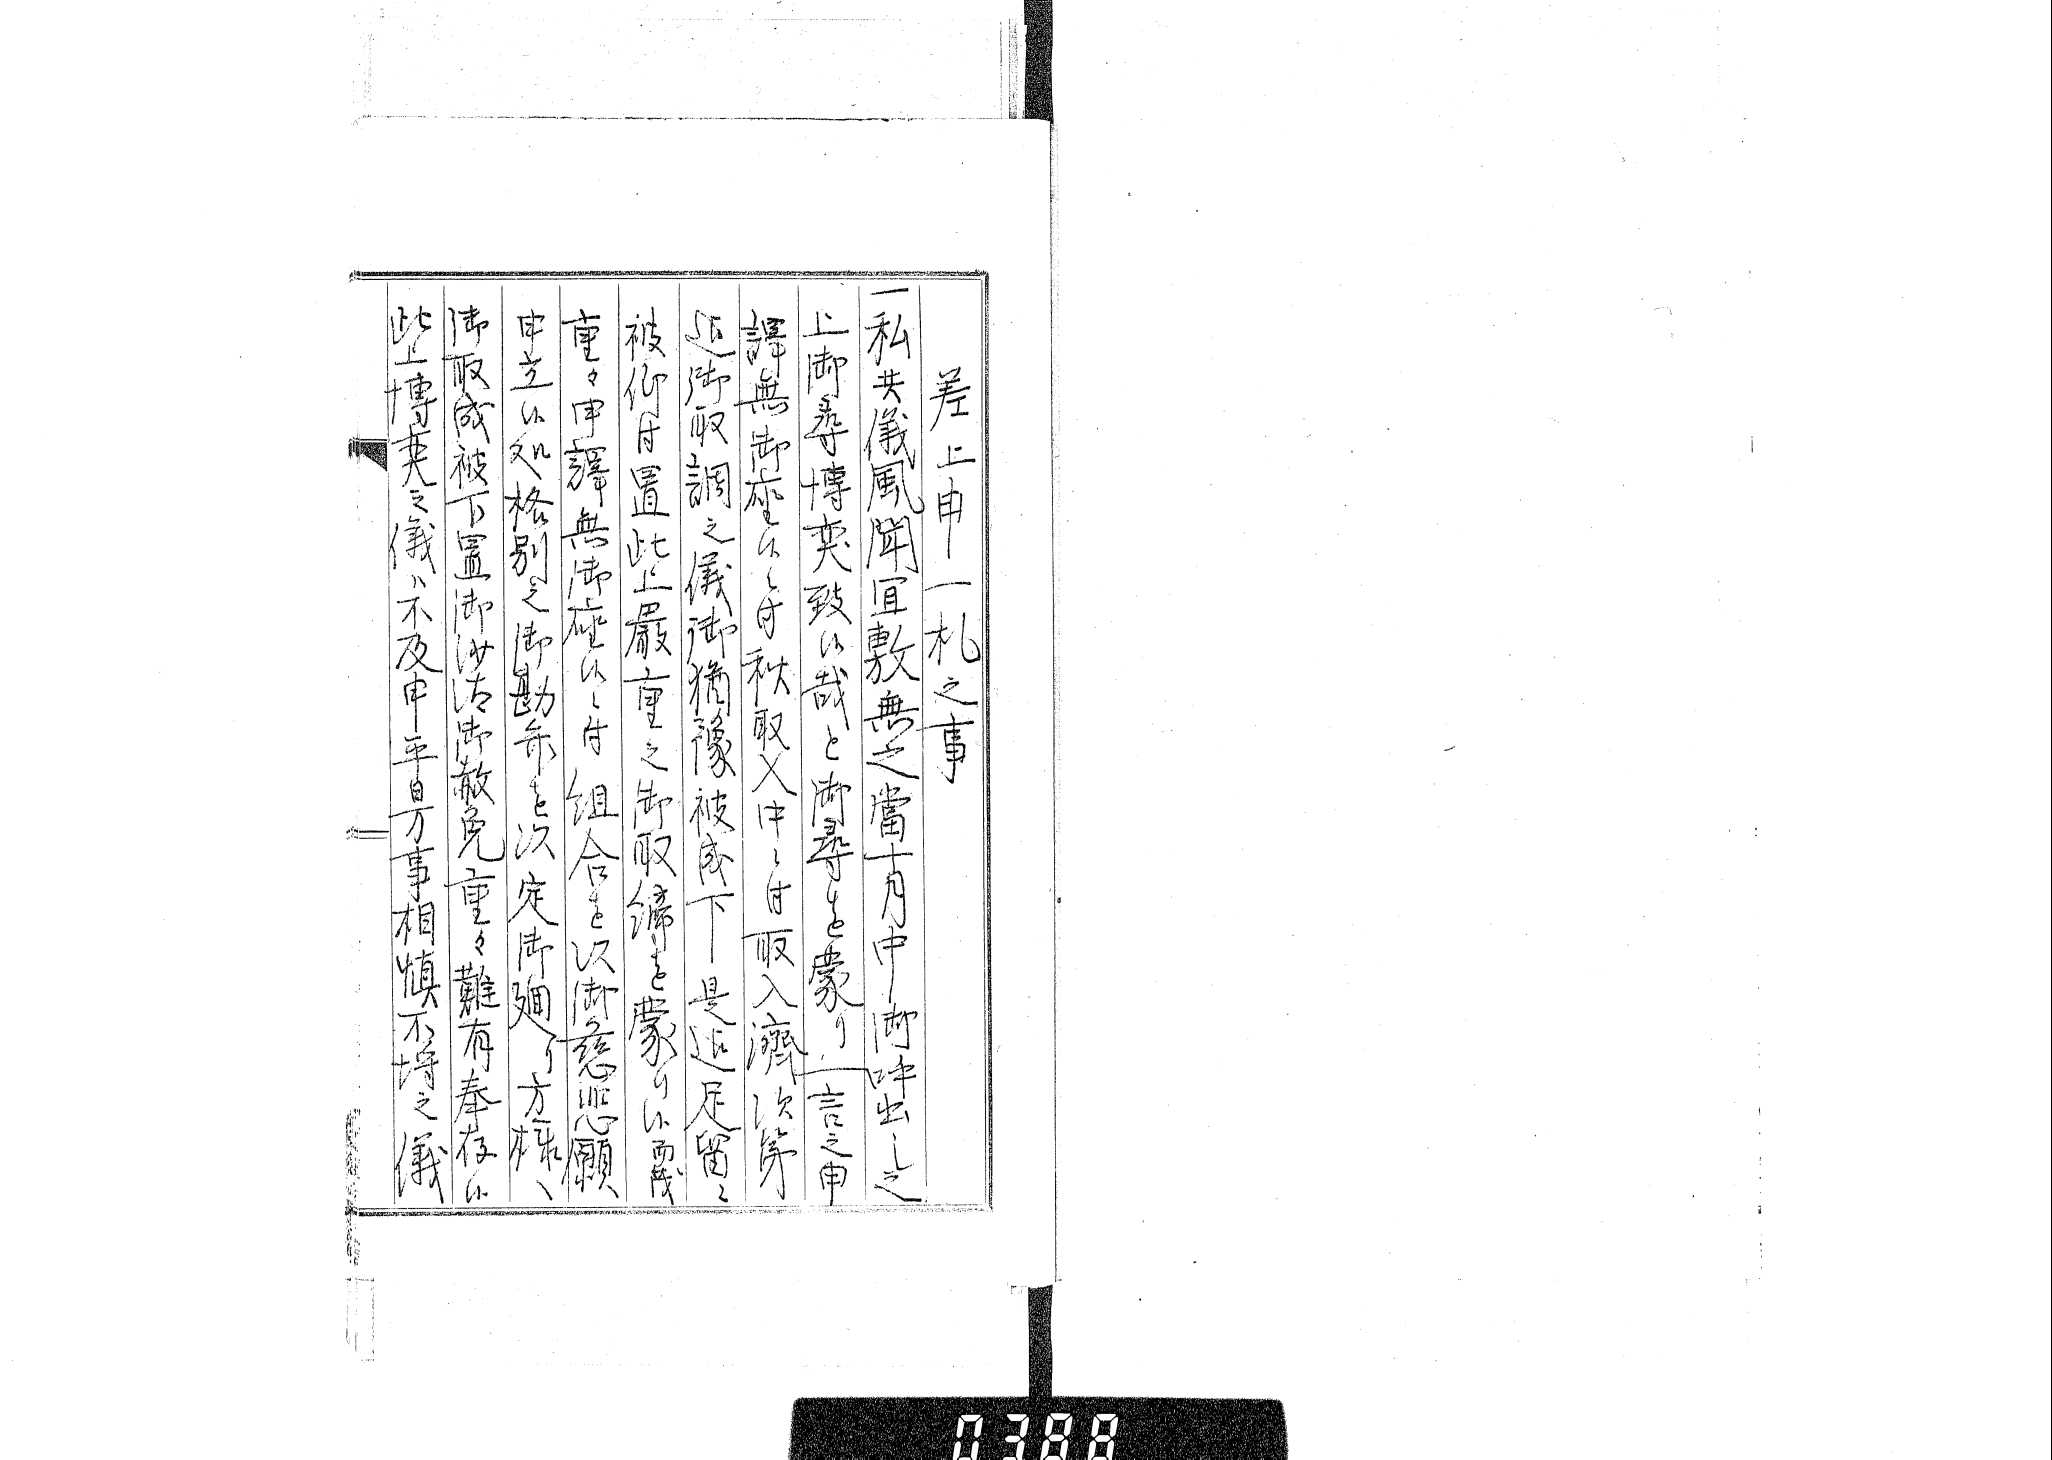 差上申一札之事
一私共儀風聞冝敷無之當十月中御呼出し之
上御尋博奕致候哉と御尋を蒙り一言之申
譯無御座候ニ付秋取入中ニ付取入濟次第
迄御取調之儀御猶豫被成下是迄足留ニ
被仰付置此上嚴重之御取締を蒙り候而茂
重々申譯無御座候ニ付組合を以御慈悲願
申立候処格別之御勘弁を以定御廻り方様ヘ
御取成被下置御沙汰御赦免重々難有奉存候
此上博奕之儀ハ不及申平日万事相慎不埒之儀
0388